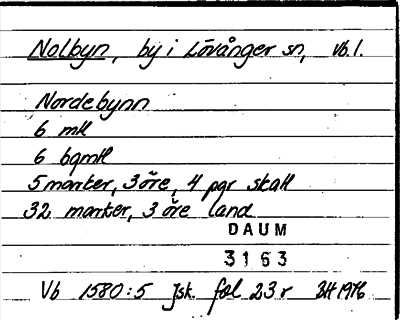 Nolbyn, by i Lövånger sn, Vb.l.
Nordebynn
6 mtl
6 bgmtl
5 marker, 3 öre, 4 pgr skatt
32 marker, 3 öre land
DAUM
3163
Vb 1580:5 Jsk. fol 23r 1976